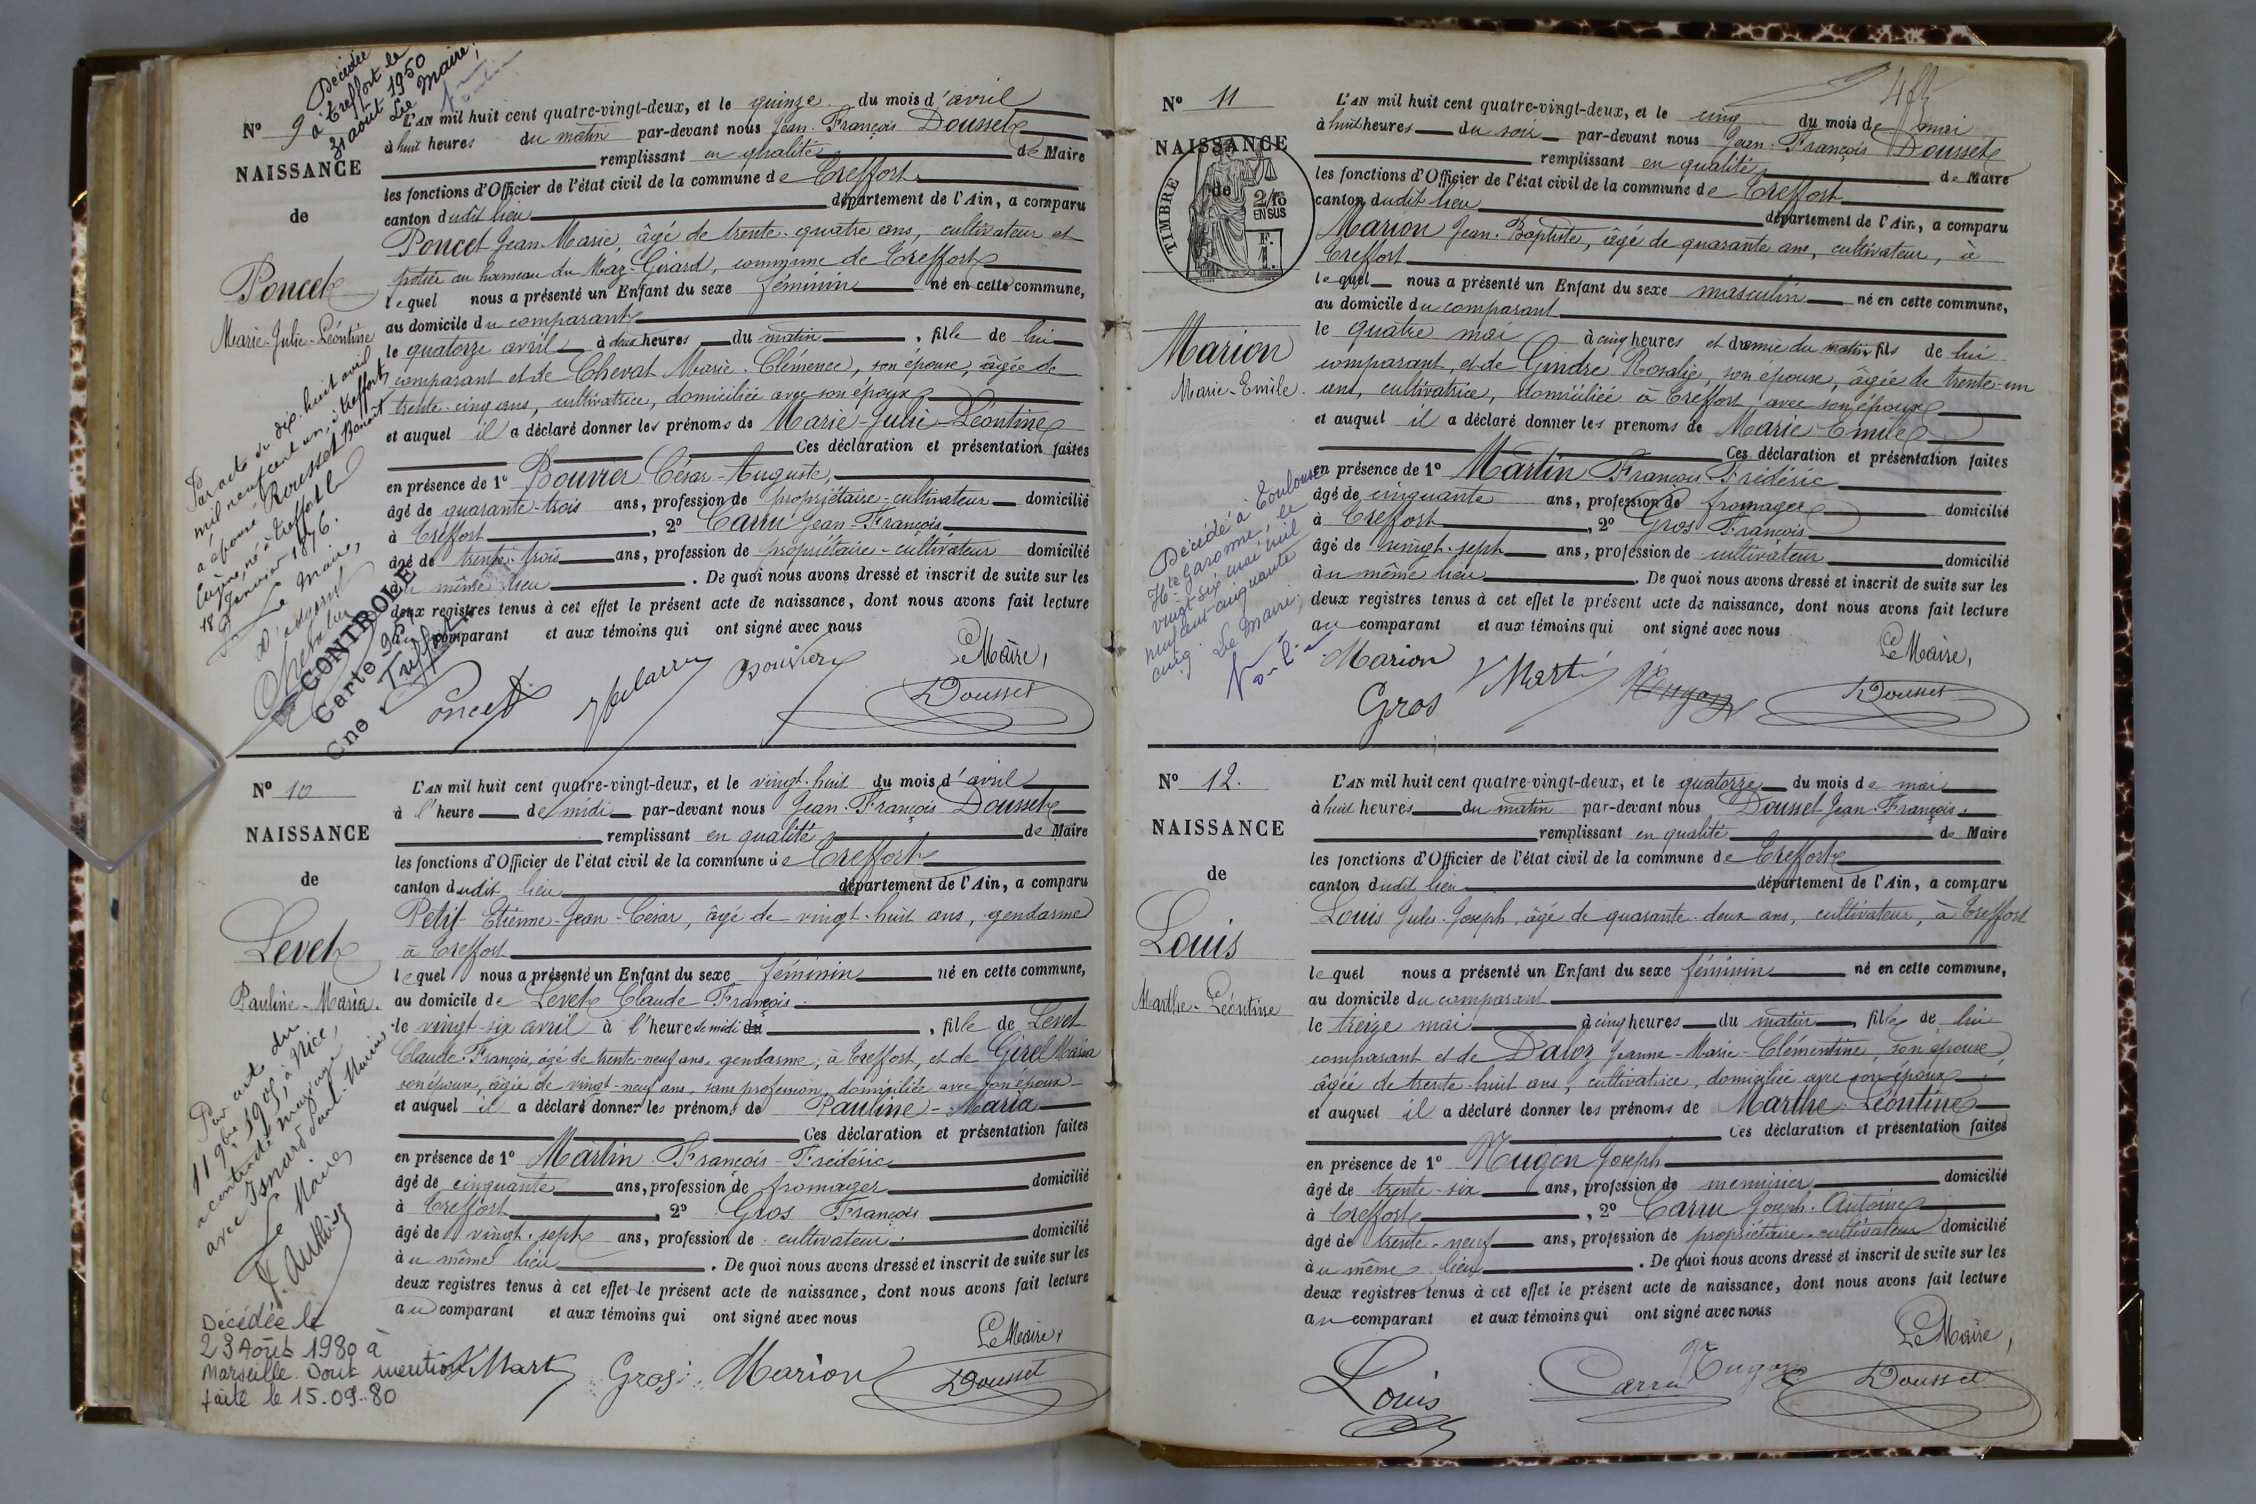 Décédée
à Treffort le
31 août 1950
Le Maire,
N° 9
NAISSANCE
de
Poncet
Marie-Julie-Léontine
L'AN mil huit cent quatre-vingt-deux, et le quinze du mois d'avril
à huit heures du matin par-devant nous Jean-François Dousset
remplissant en qualité de Maire
les fonctions d'Officier de l'état civil de la commune de Treffort
canton dudit lieu département de l'Ain, a comparu
Poncet Jean-Marie, âgé de trente-quatre ans, cultivateur et
potier au hameau du Maz-Girard, commune de Treffort
lequel nous a présenté un Enfant du sexe féminin né en cette commune,
au domicile du comparant
le quatorze avril à deux heures du matin, fille de lui
comparant et de Chevat Marie-Clémence, son épouse, âgée de
trente-cinq ans, cultivatrice, domiciliée avec son époux
et auquel il a déclaré donner les prénoms de Marie-Julie-Léontine
Ces déclaration et présentation faites
en présence de 1° Bouvier César-Auguste,
âgé de quarante-trois ans, profession de propriétaire-cultivateur domicilié
à Treffort, 2° Carru Jean-François
âgé de trente-trois ans, profession de propriétaire-cultivateur domicilié
au même lieu. De quoi nous avons dressé et inscrit de suite sur les
deux registres tenus à cet effet le présent acte de naissance, dont nous avons fait lecture
au comparant et aux témoins qui ont signé avec nous
Le Maire,
Poncet Bouvier Dousset
Par acte du dix-huit avril
mil neuf cent un, à Treffort,
a épousé Rousset Benoît
Eugène, né à Treffort le
18 Janvier 1876.
Le Maire,
CONTROLE
Carte
Cne Treffort
N° 10
NAISSANCE
de
Levet
Pauline-Maria.
L'AN mil huit cent quatre-vingt-deux, et le vingt-huit du mois d'avril
à l'heure de midi par-devant nous Jean-François Dousset
remplissant en qualité de Maire
les fonctions d'Officier de l'état civil de la commune de Treffort
canton dudit lieu département de l'Ain, a comparu
Petit Etienne-Jean-César, âgé de vingt-huit ans, gendarme
à Treffort
lequel nous a présenté un Enfant du sexe féminin né en cette commune,
au domicile de Levet Claude François
le vingt-six avril à l'heure de midi du, fille de Levet
Claude-François, âgé de trente-neuf ans, gendarme, à Treffort, et de Girel Maria
son épouse, âgée de vingt-neuf ans, sans profession, domiciliée avec son époux
et auquel il a déclaré donner les prénoms de Pauline-Maria
Ces déclaration et présentation faites
en présence de 1° Martin François-Frédéric
âgé de cinquante ans, profession de fromager domicilié
à Treffort, 2° Gros François
âgé de vingt-sept ans, profession de cultivateur domicilié
au même lieu. De quoi nous avons dressé et inscrit de suite sur les
deux registres tenus à cet effet le présent acte de naissance, dont nous avons fait lecture
au comparant et aux témoins qui ont signé avec nous
Le Maire,
Martin Gros Marion Dousset
Par acte du
11 9bre 1905, à Nice,
a contracté mariage
avec Isnard Paul-Marius
Le Maire,
Décédée le
23 Août 1980 à
Marseille. Dont mention
faite le 15.09.80
N° 11
NAISSANCE
de
TIMBRE
2/10
EN SUS
Marion
Marie-Emile.
L'AN mil huit cent quatre-vingt-deux, et le cinq du mois de mai
à huit heures du soir par-devant nous Jean-François Dousset
remplissant en qualité de Maire
les fonctions d'Officier de l'état civil de la commune de Treffort
canton dudit lieu département de l'Ain, a comparu
Marion Jean-Baptiste, âgé de quarante ans, cultivateur, à
Treffort
lequel nous a présenté un Enfant du sexe masculin né en cette commune,
au domicile du comparant
le quatre mai à cinq heures et demie du matin fils de lui
comparant, et de Gindre Rosalie, son épouse, âgée de trente-un
ans, cultivatrice, domiciliée à Treffort avec son époux
et auquel il a déclaré donner les prenoms de Marie-Emile
Ces déclaration et présentation faites
en présence de 1° Martin François-Frédéric
âgé de cinquante ans, profession de fromager domicilié
à Treffort, 2° Gros François
âgé de vingt-sept ans, profession de cultivateur domicilié
au même lieu. De quoi nous avons dressé et inscrit de suite sur les
deux registres tenus à cet effet le présent acte de naissance, dont nous avons fait lecture
au comparant et aux témoins qui ont signé avec nous
Le Maire,
Marion Gros Martin Nugon Dousset
Décédé à Toulouse
Hte Garonne, le
vingt-six mai mil
neuf cent cinquante
cinq. Le Maire,
N° 12.
NAISSANCE
de
Louis
Marthe-Léontine
L'AN mil huit cent quatre-vingt-deux, et le quatorze du mois de mai
à huit heures du matin par-devant nous Dousset Jean-François,
remplissant en qualité de Maire
les fonctions d'Officier de l'état civil de la commune de Treffort
canton dudit lieu département de l'Ain, a comparu
Louis Jules-Joseph, âgé de quarante-deux ans, cultivateur, à Treffort
lequel nous a présenté un Enfant du sexe féminin né en cette commune,
au domicile du comparant
le treize mai à cinq heures du matin, fille de lui
comparant et de Daloz Jeanne-Marie-Clémentine, son épouse,
âgée de trente-huit ans, cultivatrice, domiciliée avec son époux
et auquel il a déclaré donner les prénoms de Marthe-Léontine
Ces déclaration et présentation faites
en présence de 1° Nugon Joseph
âgé de trente-six ans, profession de menuisier domicilié
à Treffort, 2° Carru Joseph-Antoine
âgé de trente-neuf ans, profession de propriétaire-cultivateur domicilié
au même lieu. De quoi nous avons dressé et inscrit de suite sur les
deux registres tenus à cet effet le présent acte de naissance, dont nous avons fait lecture
au comparant et aux témoins qui ont signé avec nous
Le Maire,
Louis Carru Nugon Dousset